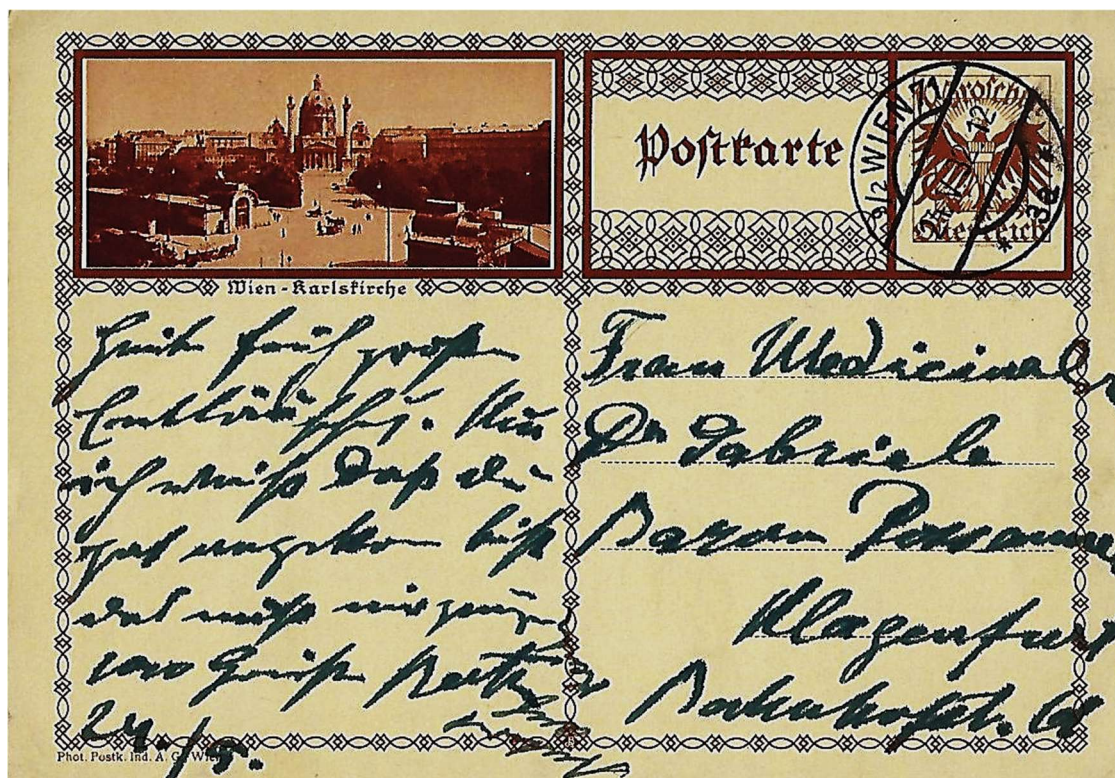 10 Groschen
9/2 WIEN 71
12
* 3a *
Österreich
Postkarte
Wien - Karlskirche
Heute früh große
Enttäuschg. Nur
ich weiß daß du
gut angekom bist
das muß mir genüg
1000 Grüße
24./5.
Frau Medicinal
Dr Gabriele
Baron Possanner
Klagenfurt
Bahnhofst.
Phot. Postk. Ind. A. G. Wien